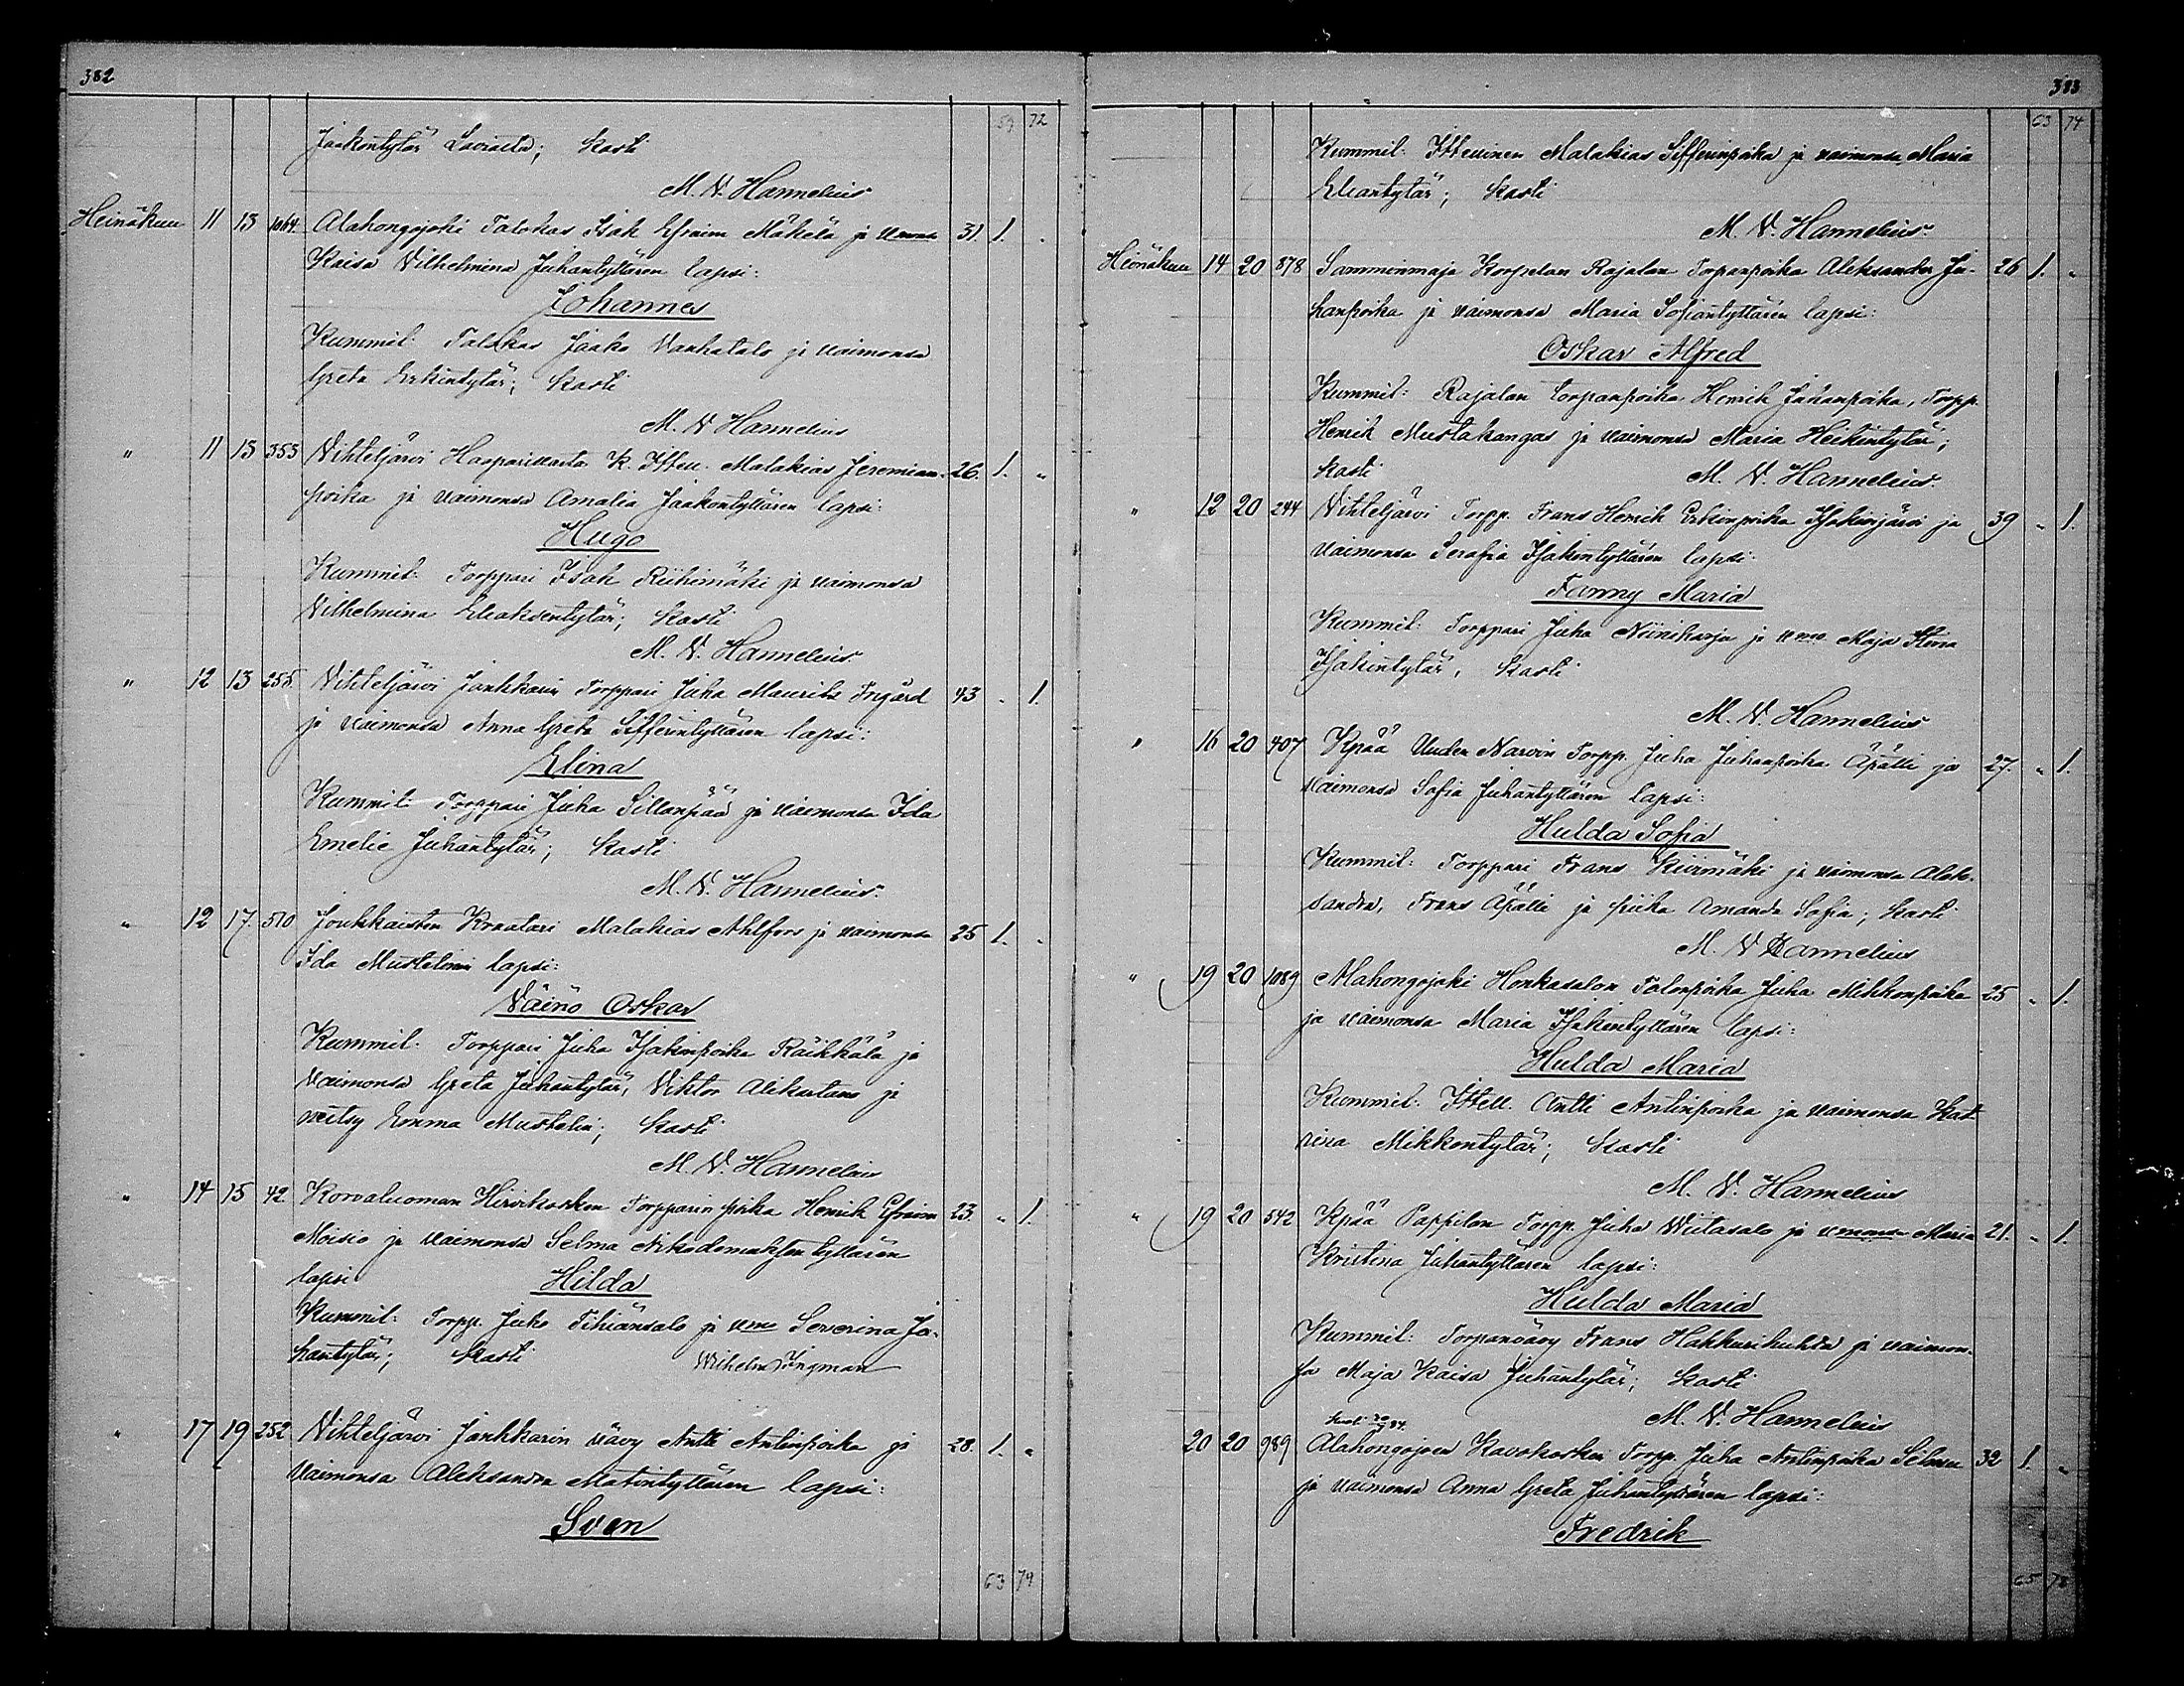 382
59 72
Jaakontytär Laviasta; Kasti
M. V. Hannelius
Heinäkuu 11 13 1064. Alahongojoki Talokas Isak Efraim Mäkelä ja vmonsa 31. 1. "
Kaisa Vilhelmina Juhantyttären lapsi:
Johannes
Kummit: Talokas Jaako Vanhatalo ja vaimonsa
Greta Erkintytär; Kasti
M. V. Hannelius
" 11 13 353 Vihteljärvi Haaparikasta K. Itsell. Malakias Jeremian- 26. 1. "
poika ja vaimonsa Amalia Jaakontyttären lapsi:
Hugo
Kummit: Torppari Isak Riihimäki ja vaimonsa
Vilhelmina Eliaksentytär; Kasti
M. V. Hannelius
" 12 13 255. Vihteljärvi Jankkarin Torppari Juha Maurits Ingård 43 " 1.
ja vaimonsa Anna Greta Sifferintyttären lapsi:
Elina
Kummit: Torppari Juha Sillanpää ja vaimonsa Ida
Emelie Juhantytär; Kasti
M. V. Hannelius
" 12 17. 510 Joukkaisten Kraatari Malakias Ahlfors ja vaimonsa 25 1. "
Ida Mustelinin lapsi:
Väinö Oskar
Kummit: Torppari Juha Isakinpoika Räikkälä ja
vaimonsa Greta Juhantytär, Viktor Alikartano ja
neitsy Emma Mustelin; Kasti
M. V. Hannelius
" 14 15 42. Korvaluoman Hirvikosken Torpparin poika Henrik Efraim 23. " 1.
Moisio ja vaimonsa Selma Nikodemuksen tyttären
lapsi Hilda
Kummit: Torpp. Juho Tihiänsalo ja vmo Severina Jo-
hantytär; Kasti Wilhelm Ingman
" 17 19 252. Vihteljärvi Jankkarin vävy Antti Antinpoika ja 28. 1. "
vaimonsa Aleksandra Matintyttären lapsi:
Sven
63 74
383
63 74
Kummit: Itsellinen Malakias Sifferinpoika ja vaimonsa Maria
Eliantytär; Kasti
M. V. Hannelius
Heinäkuu 14 20 378 Samminmaja Korpelan Rajalan Torpanpoika Aleksander Ju- 26 1. "
hanpoika ja vaimonsa Maria Sofiantyttären lapsi:
Oskar Alfred
Kummit: Rajalan torpanpoika Henrik Juhanpoika, Torpp.
Henrik Mustakangas ja vaimonsa Maria Heikintytär;
Kasti M. V. Hannelius
" 12 20 244 Vihteljärvi Torpp. Frans Henrik Erkinpoika Isokivijärvi ja 39 " 1.
vaimonsa Serafia Isakintyttären lapsi:
Fanny Maria
Kummit: Torppari Juha Niiniharja ja vmo Maja Stina
Isakintytär, Kasti
M. V. Hannelius
" 16 20 407 Kpää Uuden Narvin Torpp. Juha Juhanpoika Äpälli ja 27. " 1.
vaimonsa Sofia Juhantyttären lapsi:
Hulda Sofia
Kummit: Torppari Frans Kivimäki ja vaimonsa Alek-
sandra, Frans Äpälli ja piika Amanda Sofia; Kasti
M. V Hannelius
" 19 20 1089 Alahongojoki Honkasalon Talonpoika Juha Mikkonpoika 25 " 1.
ja vaimonsa Maria Isakintyttären lapsi:
Hulda Maria
Kummit: Itsell. Antti Antinpoika ja vaimonsa Kat-
rina Mikkontytär; Kasti
M. V. Hannelius
" 19 20 542 Kpää Pappilan Torpp. Juha Viitasalo ja vmonsa Maria 21. " 1.
Kristina Juhantyttären lapsi:
Hulda Maria
Kummit: Torpanvävy Frans Hakkurikuhta ja vaimon-
sa Maja Kaisa Juhantytär; Kasti
M. V. Hannelius
20 20 989 Alahongojoen Kavokosken Torpp. Juha Antinpoika Selman 32 1. "
ja vaimonsa Anna Greta Juhantyttären lapsi:
Fredrik
65 78